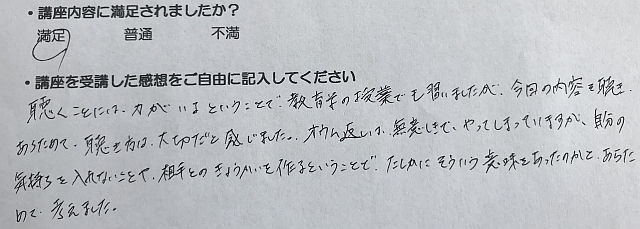 ・講座内容に満足されましたか？
満足 普通 不満
・講座を受講した感想をご自由に記入してください
聴くことには、力がいるということで、教育学の授業でも習いましたが、今回の内容を聴き、
あらためて、聴き方は、大切だと感じました。オウム返しは、無意しきで、やってしまっていますが、自分の
気持ちを入れないことや、相手とのきょうかいを作るということで、たしかにそういう意味もあったのかと、あらた
めて、考えました。